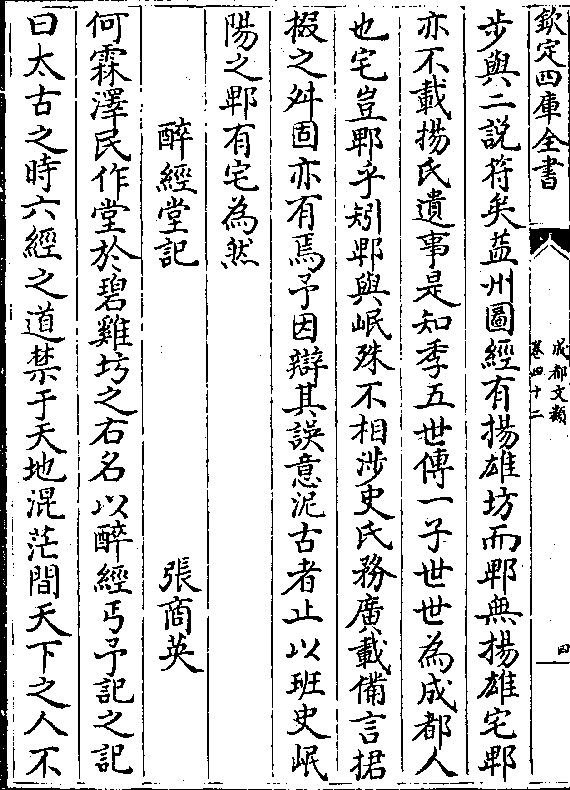 欽定四庫全書
成都文類
卷四十二
四
步與二説符矣益州圖經有揚雄坊而郫無揚雄宅郫
亦不載揚氏遺事是知季五世傳一子世世為成都人
也宅豈郫乎矧郫與岷殊不相涉史氏務廣載備言捃
掇之舛固亦有焉予因辯其誤意泥古者止以班史岷
陽之郫有宅為然
醉經堂記
張商英
何霖澤民作堂於碧雞坊之右名以醉經丐予記之記
曰太古之時六經之道禁于天地混茫間天下之人不